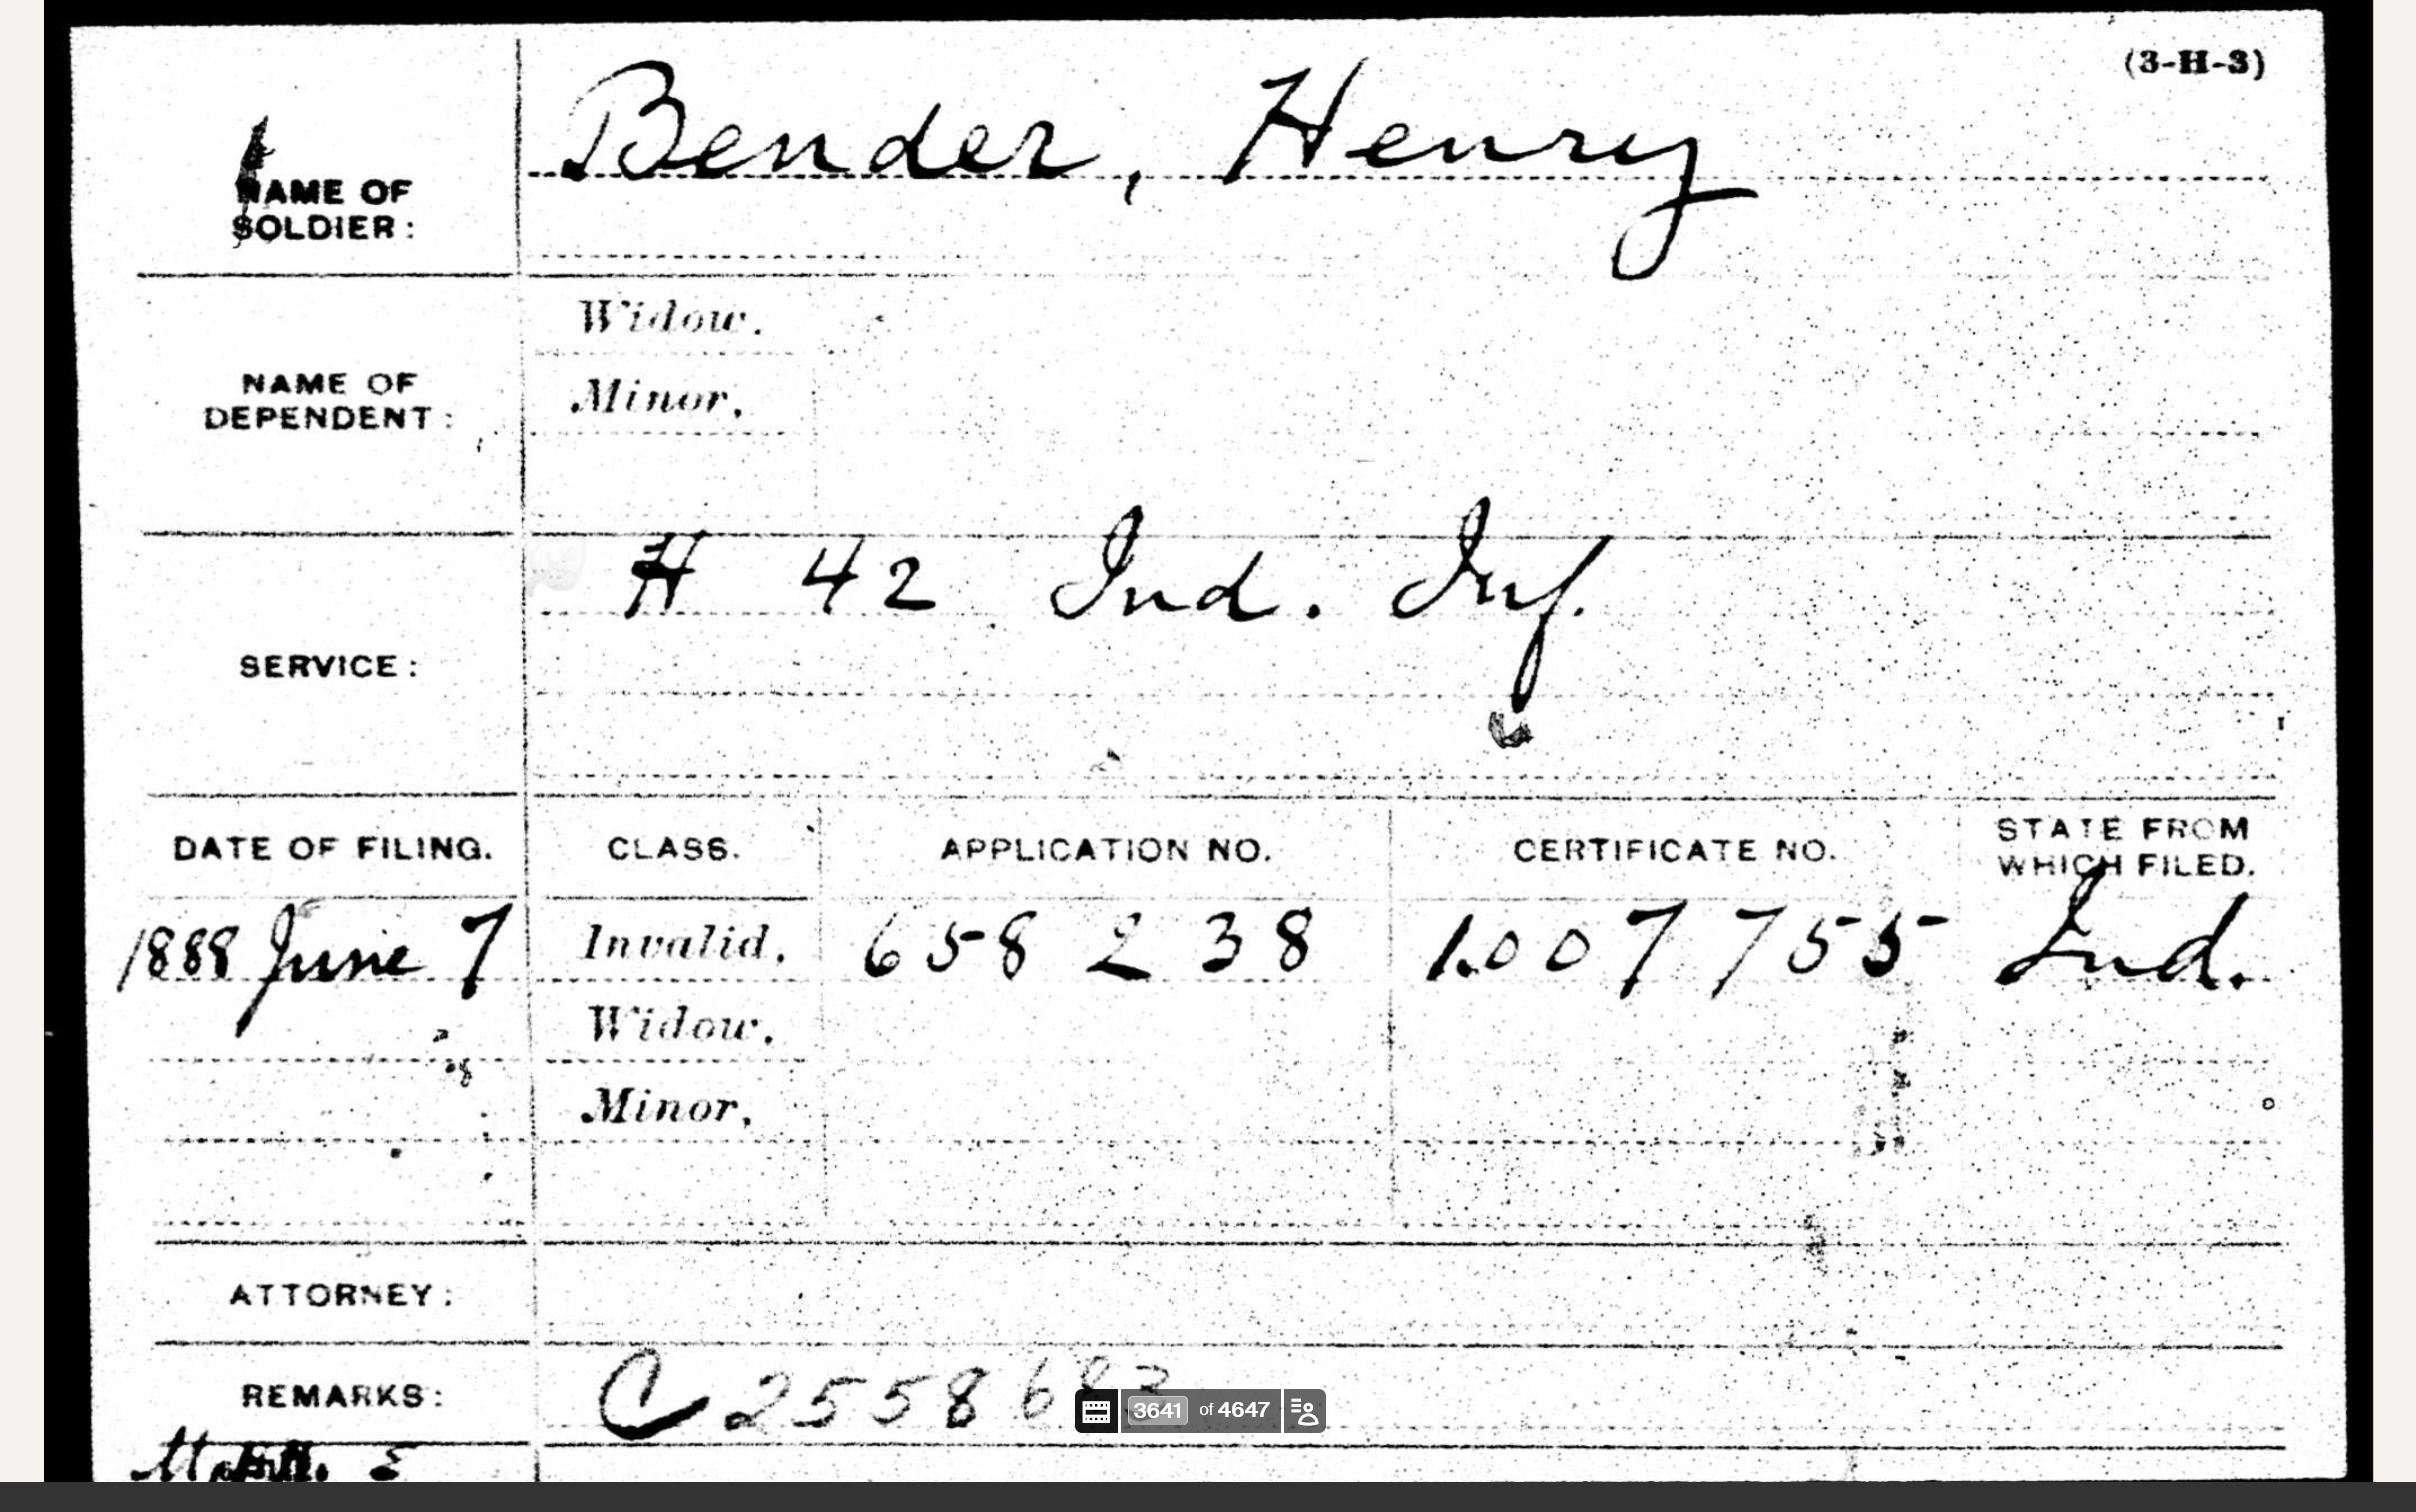 (3-H-3)
NAME OF
SOLDIER:
Bender, Henry
NAME OF
DEPENDENT:
Widow.
Minor,
SERVICE:
H 42 Ind. Inf.
DATE OF FILING.
CLASS.
APPLICATION NO.
CERTIFICATE NO.
STATE FROM
WHICH FILED.
1888 June 7
Invalid,
658 238
1.007 755
Ind.
Widow,
Minor,
ATTORNEY:
REMARKS:
3641 of 4647